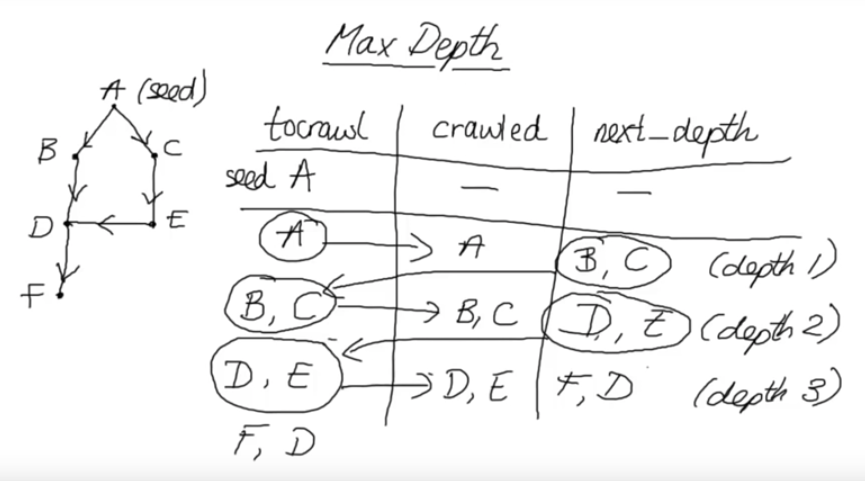 Max Depth
A (seed)
B
C
D
E
F
tocrawl crawled next_depth
seed A — —
A A B, C (depth 1)
B, C B, C D, E (depth 2)
D, E D, E F, D (depth 3)
F, D